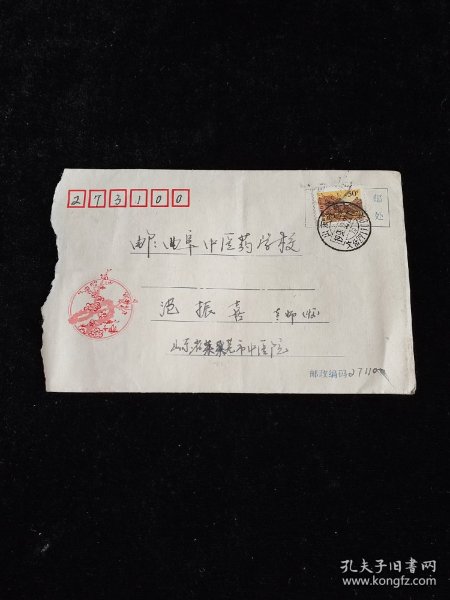 273100
50分
邮
处
邮：曲阜中医药学校
范振喜
山东省莱芜市中医院
邮政编码271100
孔夫子旧书网
www.kongfz.com